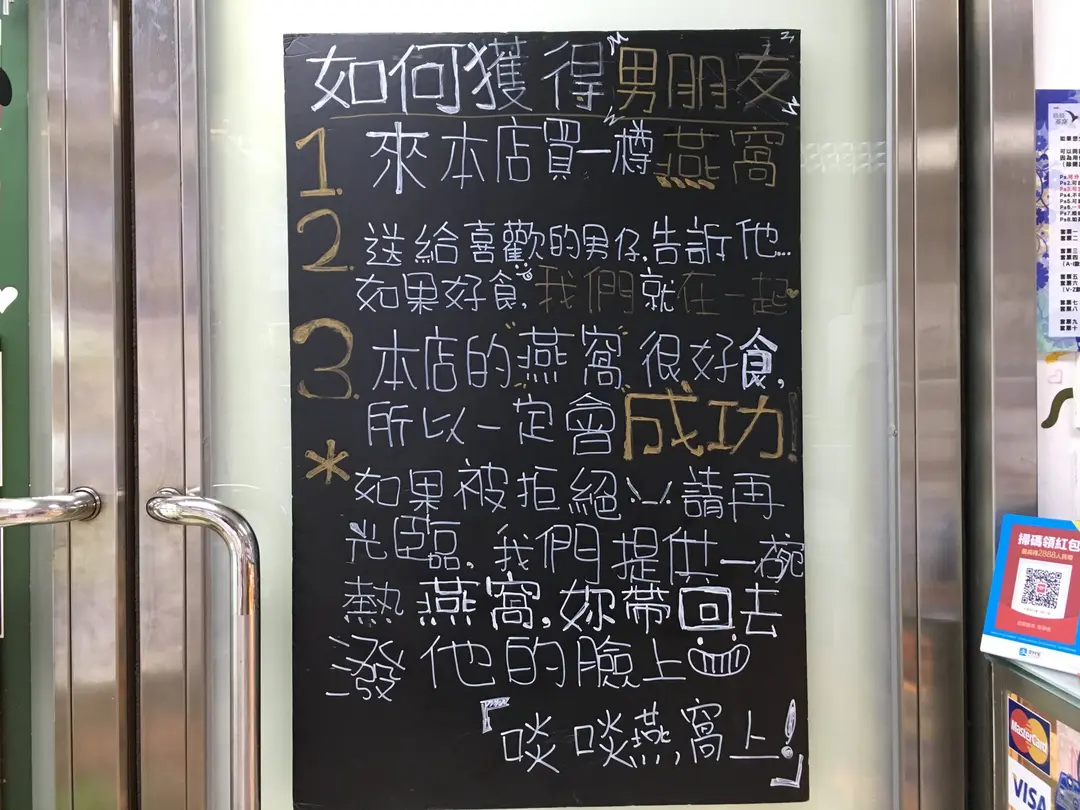 如何獲得男朋友
1. 來本店買一樽燕窩
2. 送給喜歡的男仔,告訴他...
如果好食,我們就在一起
3. 本店的燕窩很好食,
所以一定會成功!
* 如果被拒絕 請再
光臨,我們提供一碗
熱燕窩,妳帶回去
潑他的臉上
『啖啖燕窩上!』
掃碼領紅包
最高得2888人民幣
支付宝
MasterCard
VISA